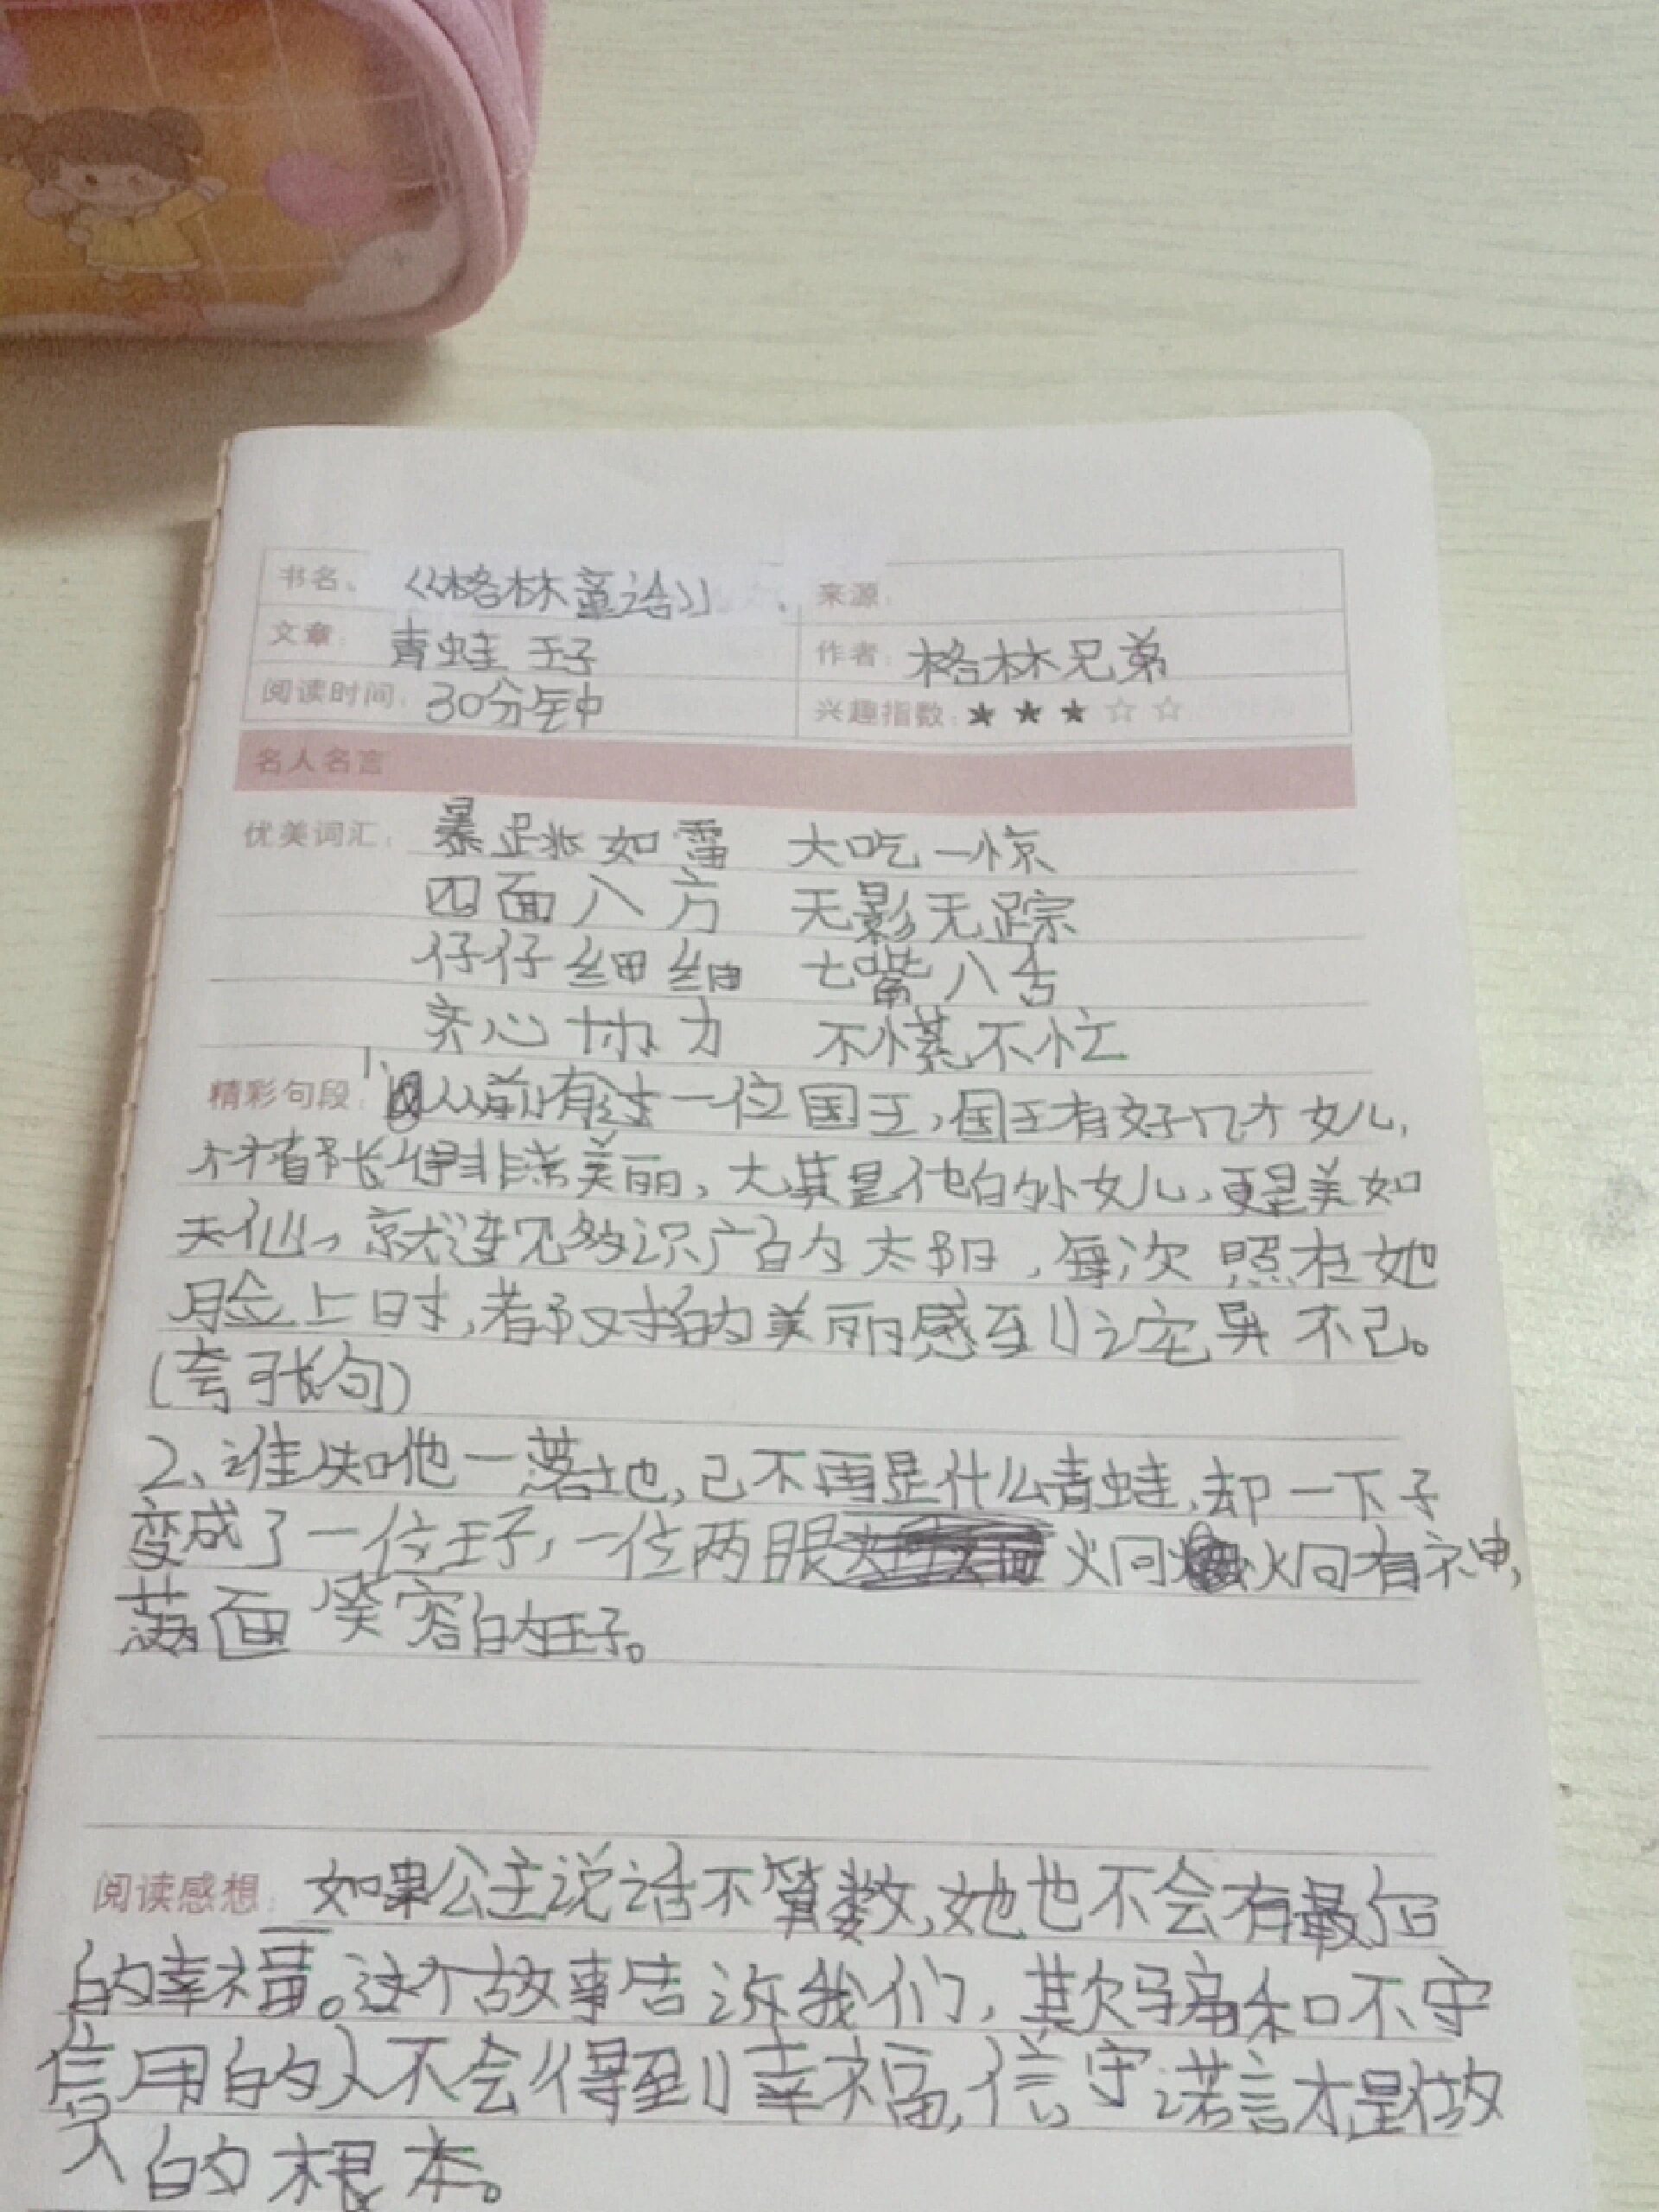 书名、 《格林童话》 来源:
文章: 青蛙王子 作者: 格林兄弟
阅读时间: 30分钟 兴趣指数: ★★★☆☆
名人名言
优美词汇: 暴跳如雷 大吃一惊
四面八方 无影无踪
仔仔细细 七嘴八舌
齐心协力 不慌不忙
精彩句段: 1、从前有过一位国王,国王有好几个女儿,
个个都长得非常美丽,尤其是他的小女儿,更是美如
天仙,就连见多识广的太阳,每次照在她
脸上时,都对她的美丽感到诧异不已。
(夸张句)
2、谁知他一落地,已不再是什么青蛙,却一下子
变成了一位王子,一位两眼炯炯有神,
满面笑容的王子。
阅读感想: 如果公主说话不算数,她也不会有最后
的幸福。这个故事告诉我们,欺骗和不守
信用的人不会得到幸福,信守诺言才是做
人的根本。